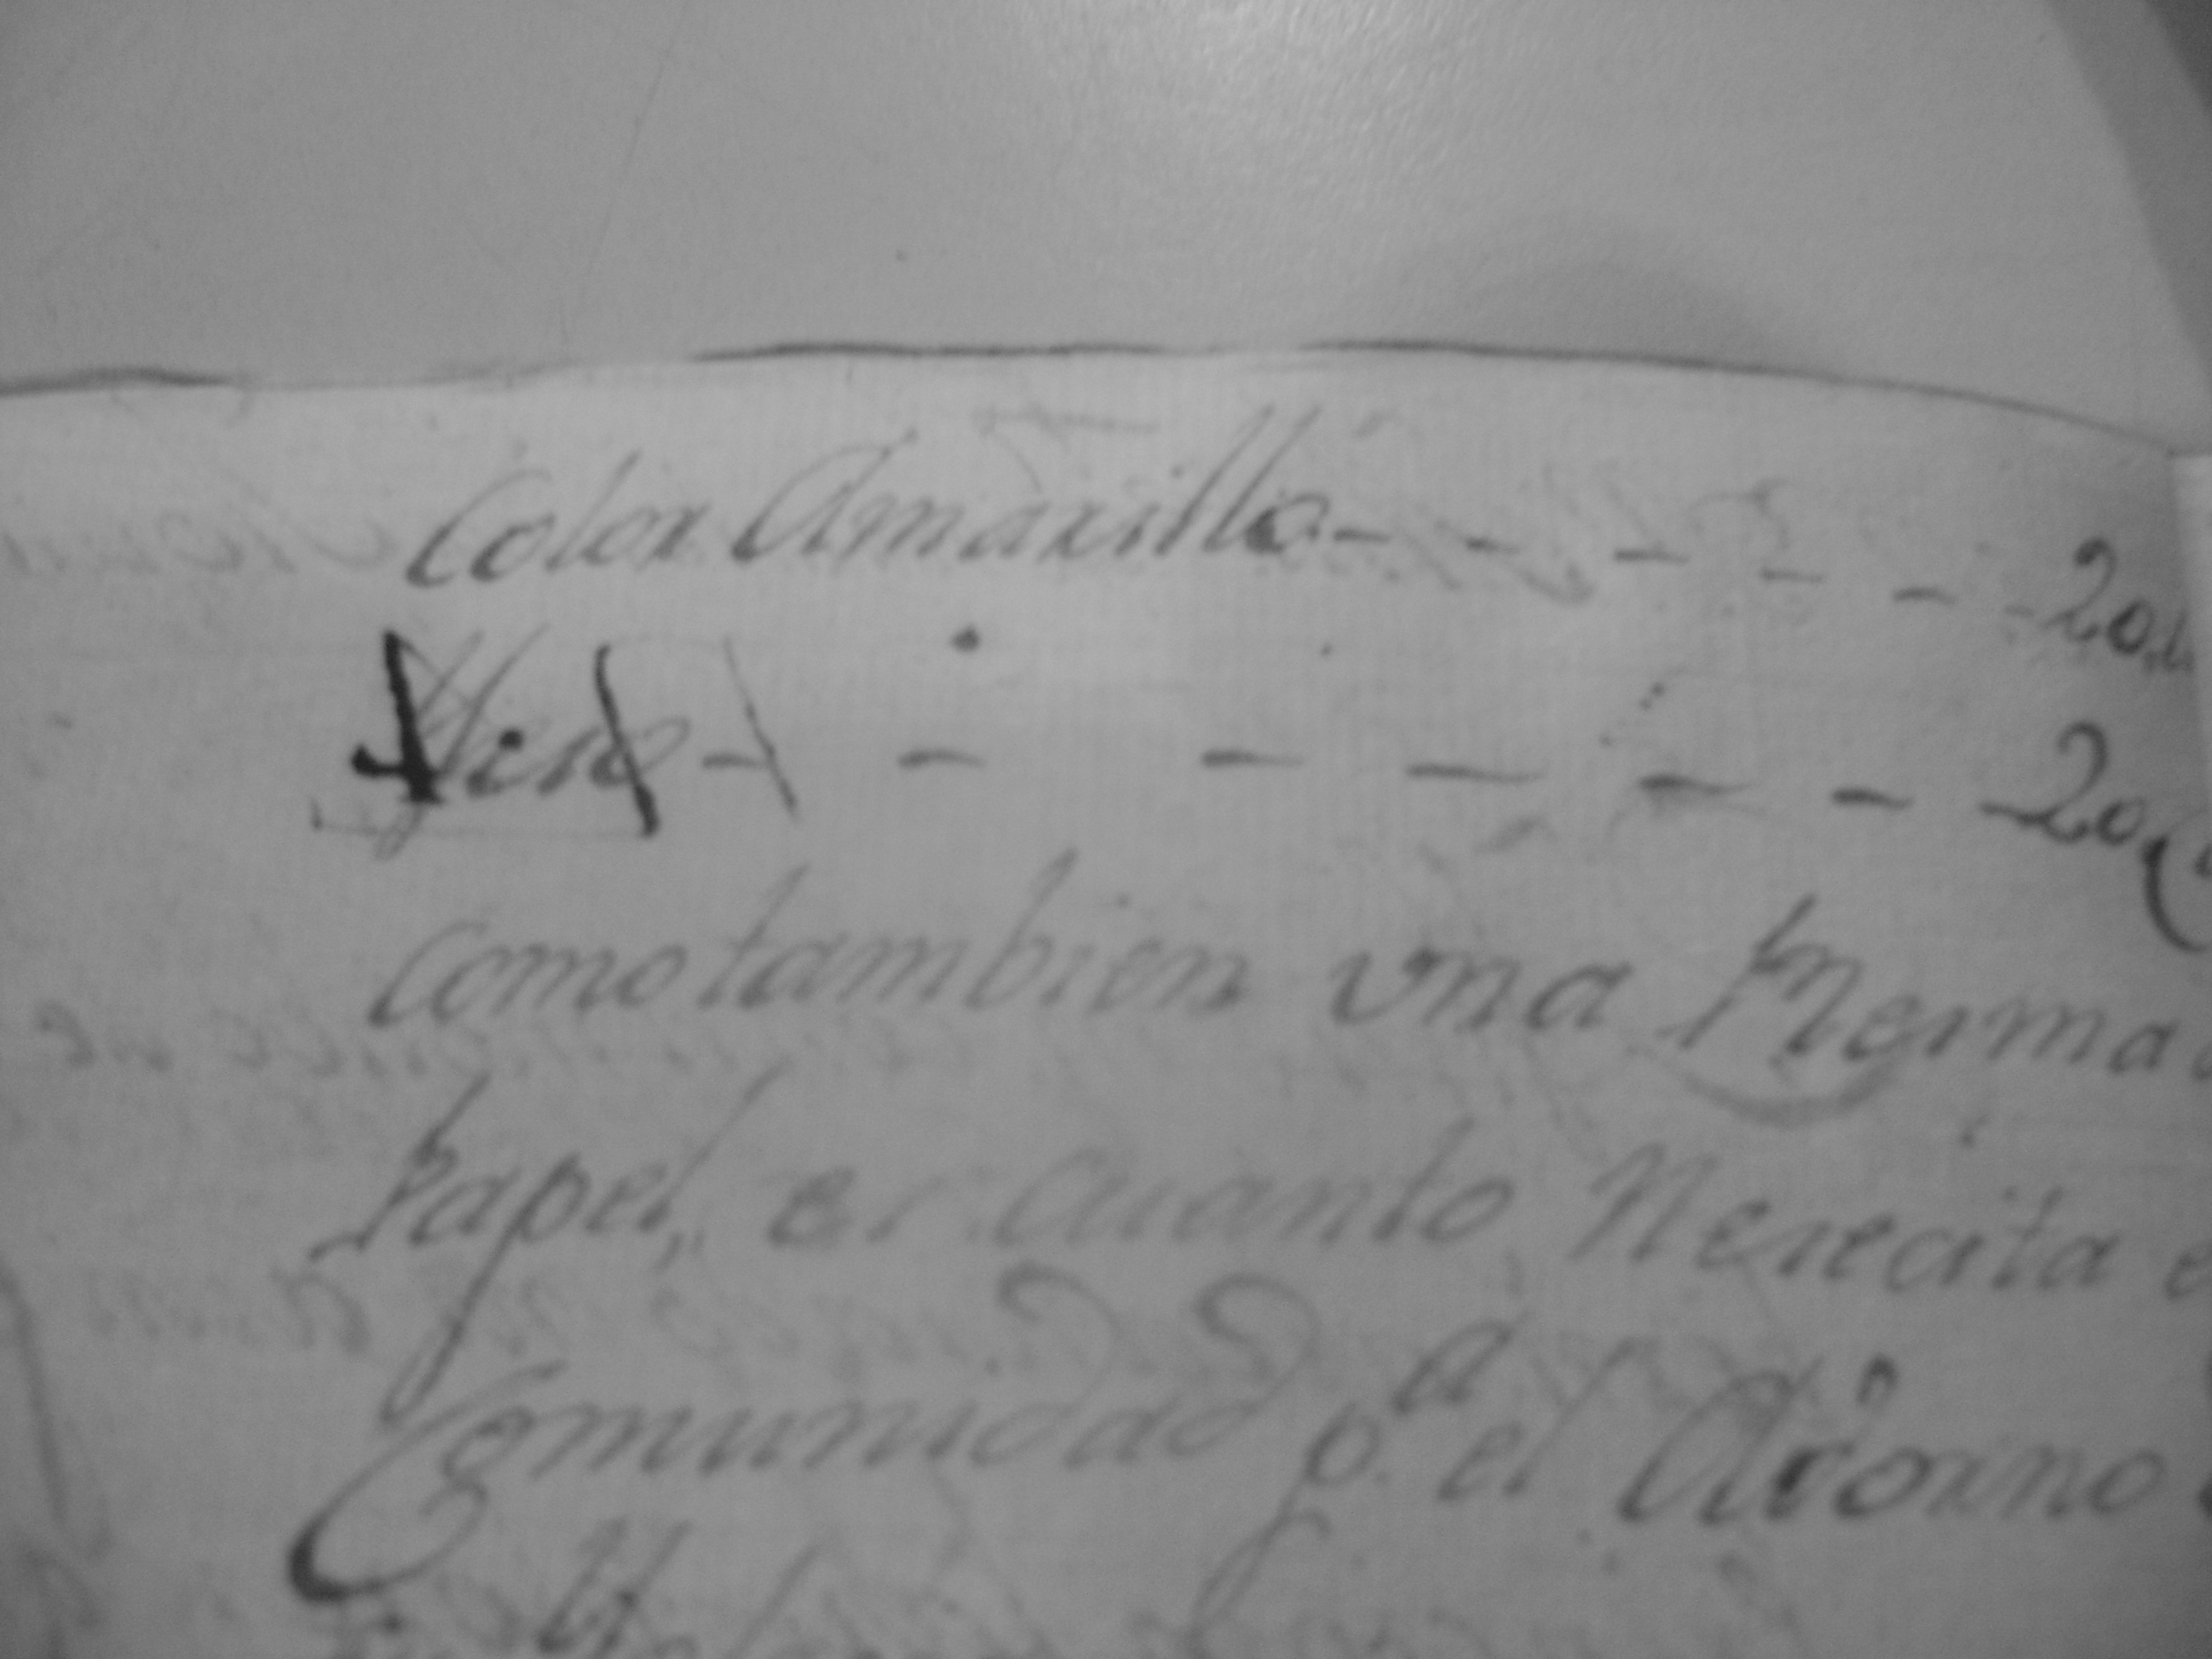 Color Amarillo - - - - - - 20,,
Yeso - - - - - - - 20
Como tambien vna Resma
Papel,, es cuanto Nesecita e
Comunidad p.ª el Adorno